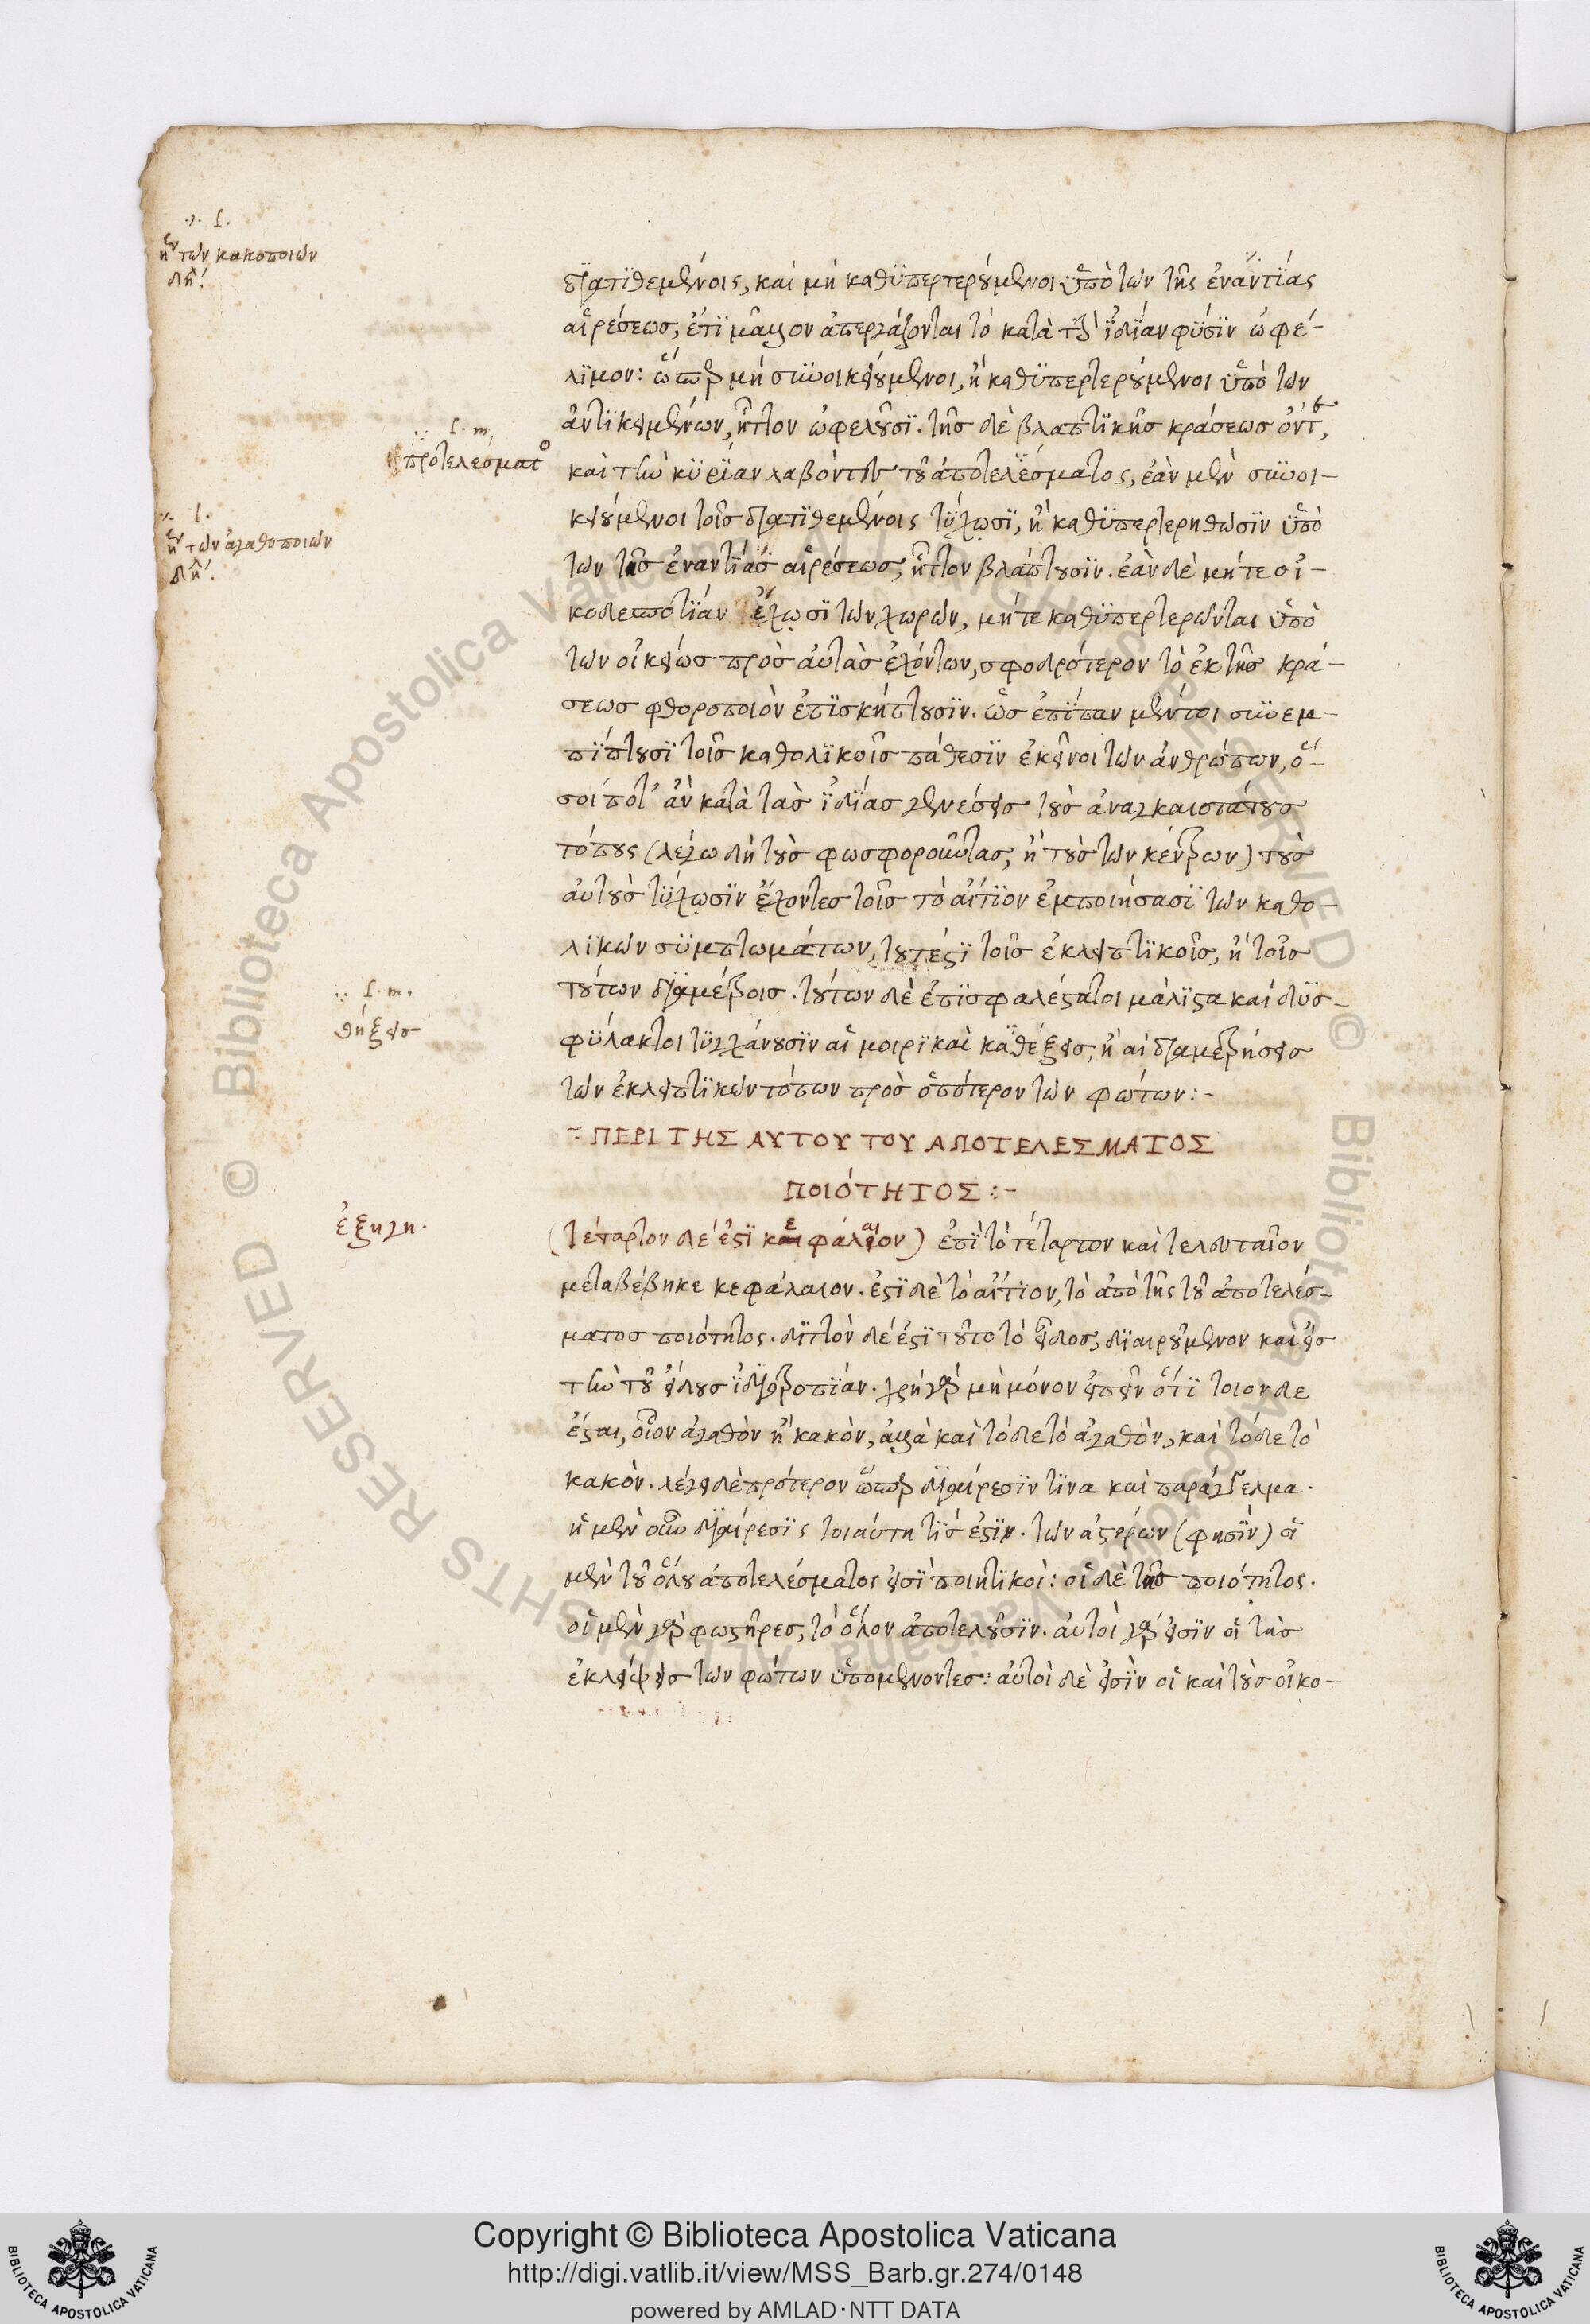 ·:· f.
ἢν τῶν κακοποιῶν
δη̃!
διατιθεμένοις, καὶ μὴ καθυπερτερούμενοι ὑπὸ τῶν τῆς ἐναντίας
αἱρέσεως, ἔτι μᾶλλον ἀπεργάζονται τὸ κατὰ τὴν ἰδίαν φύσιν ὠφέ-
λιμον: ὥσπερ μὴ συνοικειούμενοι, ἢ καθυπερτερούμενοι ὑπὸ τῶν
ἀντικειμένων, ἧττον ὠφελοῦσι. τῆς δὲ βλαπτικῆς κράσεως ὄντες,
·:· f. m.
προτελέσματος
καὶ τὴν κυρίαν λαβόντες τοῦ ἀποτελέσματος, ἐὰν μὲν συνοι-
·:· f.
ἢν τῶν ἀγαθοποιῶν
δη̃!
κειούμενοι τοῖς διατιθεμένοις τύχωσι, ἢ καθυπερτερηθῶσιν ὑπὸ
τῶν τῆς ἐναντίας αἱρέσεως, ἧττον βλάπτουσιν. ἐὰν δὲ μήτε οἰ-
κοδεσποτίαν ἔχωσι τῶν χωρῶν, μήτε καθυπερτερῶνται ὑπὸ
τῶν οἰκείως πρὸς αὐτὰς ἐχόντων, σφοδρότερον τὸ ἐκ τῆς κρά-
σεως φθοροποιὸν ἐπισκήπτουσιν. ὡς ἐπίπαν μέντοι συνεμ-
πίπτουσι τοῖς καθολικοῖς πάθεσιν ἐκεῖνοι τῶν ἀνθρώπων, ὅ-
σοί ποτ' ἂν κατὰ τὰς ἰδίας γενέσεις τοὺς ἀναγκαιοτάτους
τόπους (λέγω δὴ τοὺς φωσφοροῦντας, ἢ τοὺς τῶν κέντρων) τοὺς
αὐτοὺς τύχωσιν ἔχοντες τοῖς τὸ αἴτιον ἐμποιήσασι τῶν καθο-
λικῶν συμπτωμάτων, τουτέστι τοῖς ἐκλειπτικοῖς, ἢ τοῖς
·:· f. m.
θήξεις
τούτων διαμέτροις. τούτων δὲ ἐπισφαλέστατοι μάλιστα καὶ δυσ-
φύλακτοι τυγχάνουσιν αἱ μοιρικαὶ καθέξεις, ἢ αἱ διαμετρήσεις
τῶν ἐκλειπτικῶν τόπων πρὸς ὁπότερον τῶν φώτων:-
·:· ΠΕΡΙ ΤΗΣ ΑΥΤΟΥ ΤΟΥ ΑΠΟΤΕΛΕΣΜΑΤΟΣ
ΠΟΙΌΤΗΤΟΣ:-
ἐξηγη.
(Τέταρτον δέ ἐστι κεφάλαιον) ἐπὶ τὸ τέταρτον καὶ τελευταῖον
μεταβέβηκε κεφάλαιον. ἔστι δὲ τὸ αἴτιον, τὸ ἀπὸ τῆς τοῦ ἀποτελέσ-
ματος ποιότητος. διττὸν δέ ἐστι τοῦτο τὸ εἶδος, διαιρούμενον καὶ εἰς
τὴν τοῦ εἴδους ἰδιοτροπίαν. χρὴ γὰρ μὴ μόνον εἰπεῖν ὅτι τοιονδε
ἔσται, οἷον ἀγαθὸν ἢ κακὸν, ἀλλὰ καὶ τόδε τὸ ἀγαθὸν, καὶ τόδε τὸ
κακὸν. λέγει δὲ πρότερον ὥσπερ διαίρεσιν τινα καὶ παράγγελμα.
ἡ μὲν οὖν διαίρεσις τοιαύτη τίς ἐστιν. τῶν ἀστέρων (φησὶν) οἱ
μὲν τοῦ ὅλου ἀποτελέσματος εἰσὶ ποιητικοὶ: οἱ δὲ τῆς ποιότητος.
οἱ μὲν γὰρ φωστῆρες, τὸ ὅλον ἀποτελοῦσιν. αὐτοὶ γάρ εἰσιν οἱ τὰς
ἐκλείψεις τῶν φώτων ὑπομένοντες: αὐτοὶ δὲ εἰσὶν οἱ καὶ τοὺς οἰκο-
Copyright © Biblioteca Apostolica Vaticana
http://digi.vatlib.it/view/MSS_Barb.gr.274/0148
powered by AMLAD·NTT DATA